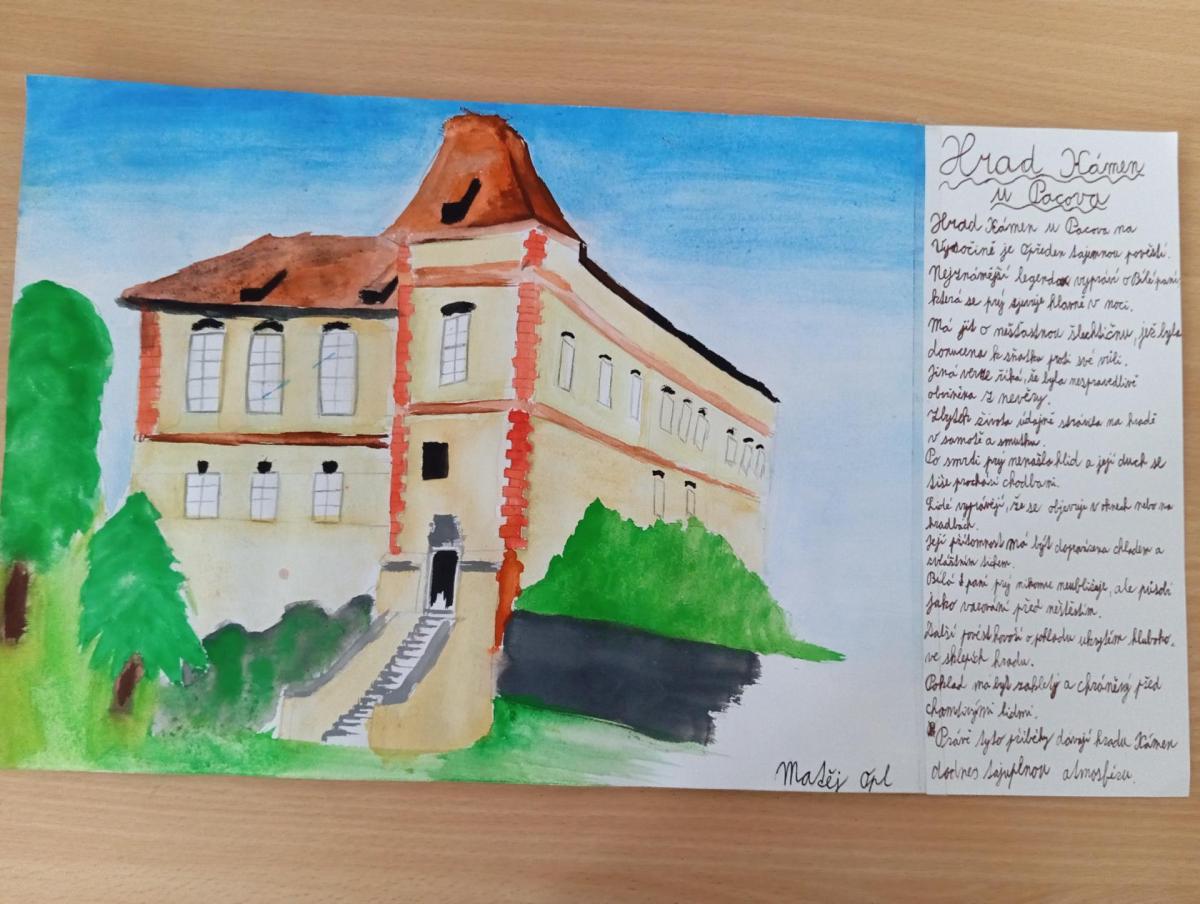 Hrad Kámen
u Pacova
Hrad Kámen u Pacova na
Vysočině je opředen tajemnou pověstí.
Nejznámější legenda vypráví o Bílé paní,
která se prý zjevuje hlavně v noci.
Má jít o nešťastnou šlechtičnu, jež byla
donucena k sňatku proti své vůli.
Jiná verze říká, že byla nespravedlivě
obviněna z nevěry.
Zbytek života údajně strávila na hradě
v samotě a smutku.
Po smrti prý nenašla klid a její duch se
tiše prochází chodbami.
Lidé vyprávějí, že se objevuje v oknech nebo na
hradbách.
Její přítomnost má být doprovázena chladem a
zvláštním tichem.
Bílá paní prý nikomu neubližuje, ale působí
jako varování před neštěstím.
Další pověst hovoří o pokladu ukrytém hluboko
ve sklepích hradu.
Poklad má být zakletý a chráněný před
chamtivými lidmi.
Právě tyto příběhy dávají hradu Kámen
dodnes tajuplnou atmosféru.
Matěj Opl